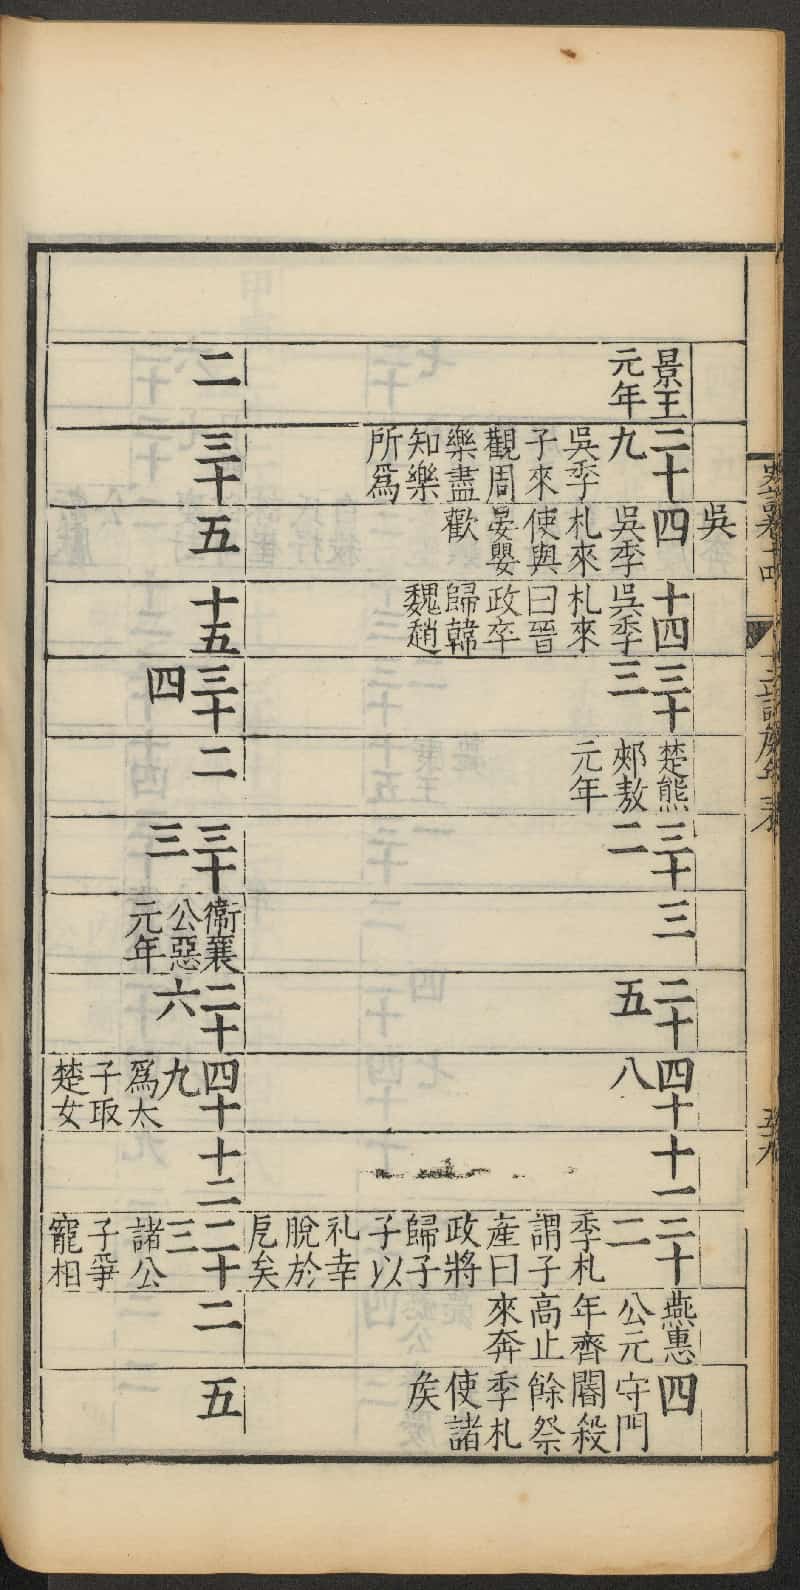 史記卷十四
十二諸侯年表
吳
景王
元年
二十
九
吳季
子來
觀周
樂盡
知樂
所爲
四
吳季
札來
使與
晏嬰
歡
十四
吳季
札來
曰晉
政卒
歸韓
魏趙
三十
三
楚熊
郟敖
元年
三十
二
三
二十
五
四十
八
十一
二十
二
季札
謂子
產曰
政將
歸子
子以
礼幸
脫於
戹矣
燕惠
公元
年齊
高止
來奔
四
守門
閽殺
餘祭
季札
使諸
矦
二
三十
五
十五
三十
四
二
三十
三
衞襄
公惡
元年
二十
六
四十
九
爲太
子取
楚女
十二
二十
三
諸公
子爭
寵相
二
五